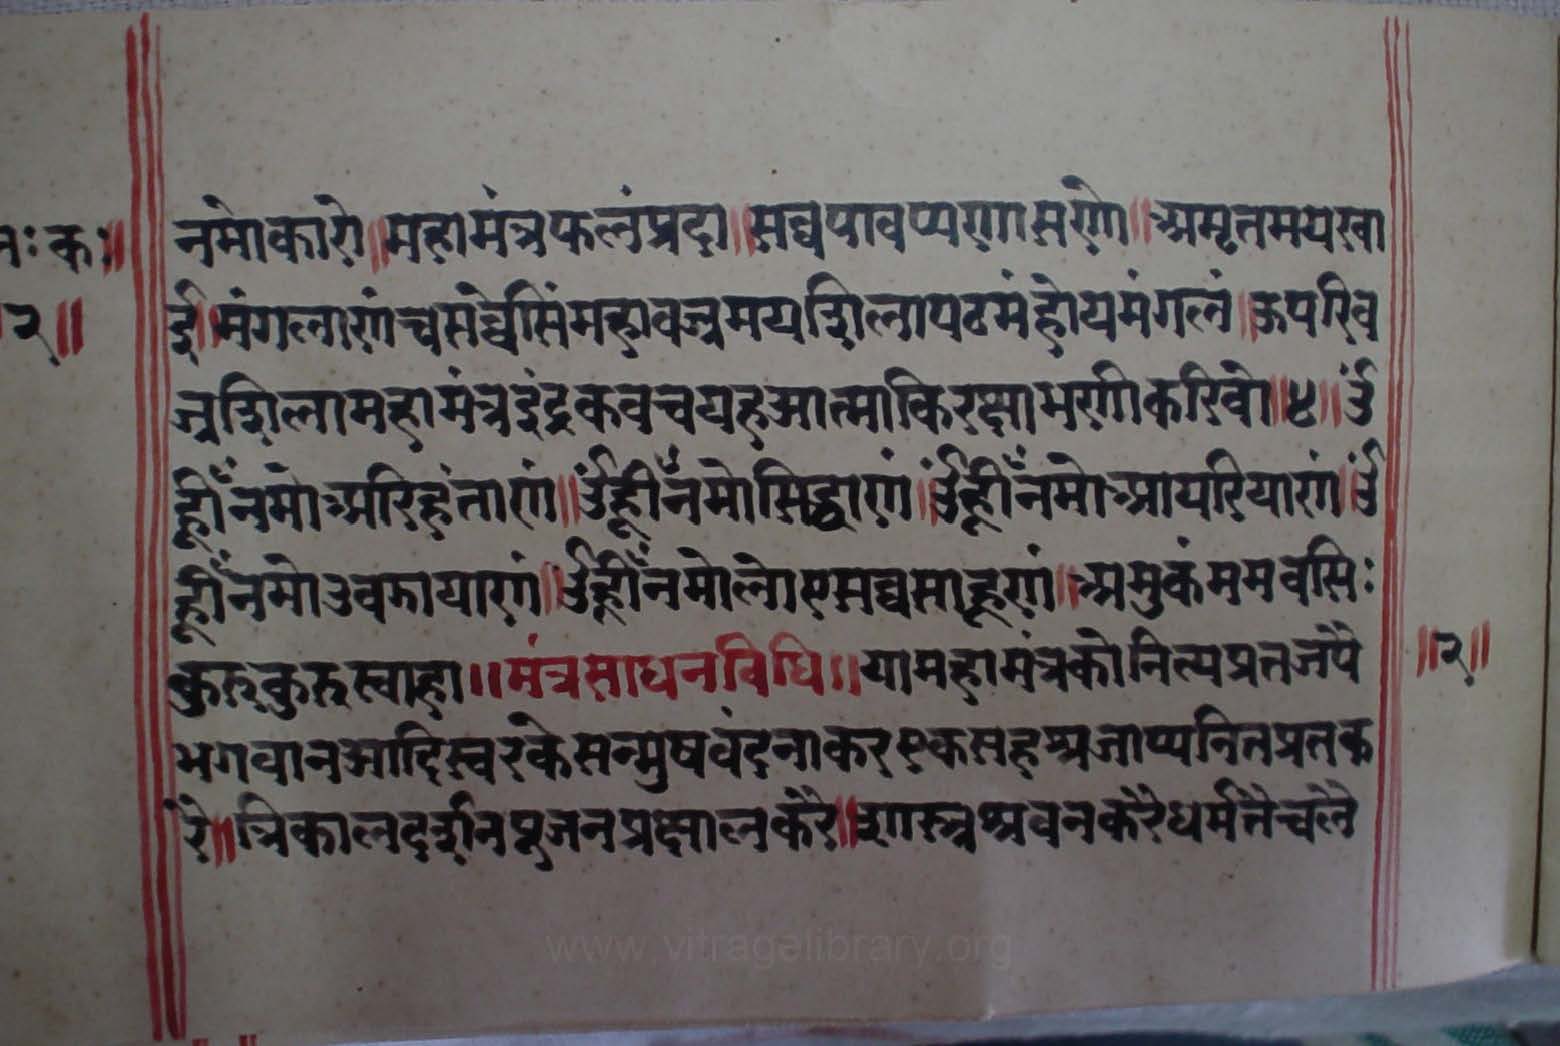 नमोकारो॥महामंत्रफलंप्रदा॥सव्वपावप्पणासणो॥अमृतमयखा
ई॥मंगलाणंचसव्वेसिंमहावज्रमयशिलापढमंहोयमंगलं॥ऊपरिव
ज्रशिलामहामंत्रइंद्रकवचयहआत्माकिरक्षाभणीकरिवो॥४॥ॐ
ह्रीँनमोअरिहंताणं॥ॐह्रीँनमोसिद्धाणं॥ॐह्रीँनमोआयरियाणं॥ॐ
ह्रीँनमोउवझायाणं॥ॐह्रीँनमोलोएसव्वसाहूणं॥अमुकंममवसिः
कुरुकुरुस्वाहा॥मंत्रसाधनविधि॥यामहामंत्रकोनित्यप्रतजपै
॥२॥
भगवानआदिस्वरकेसन्मुषवंदनाकरएकसहश्रजाप्यनितप्रतक
रे॥त्रिकालदर्शनपूजनप्रक्षालनकरै॥शास्त्रश्रवनकरैधर्मतैचलै
www.vitragelibrary.org